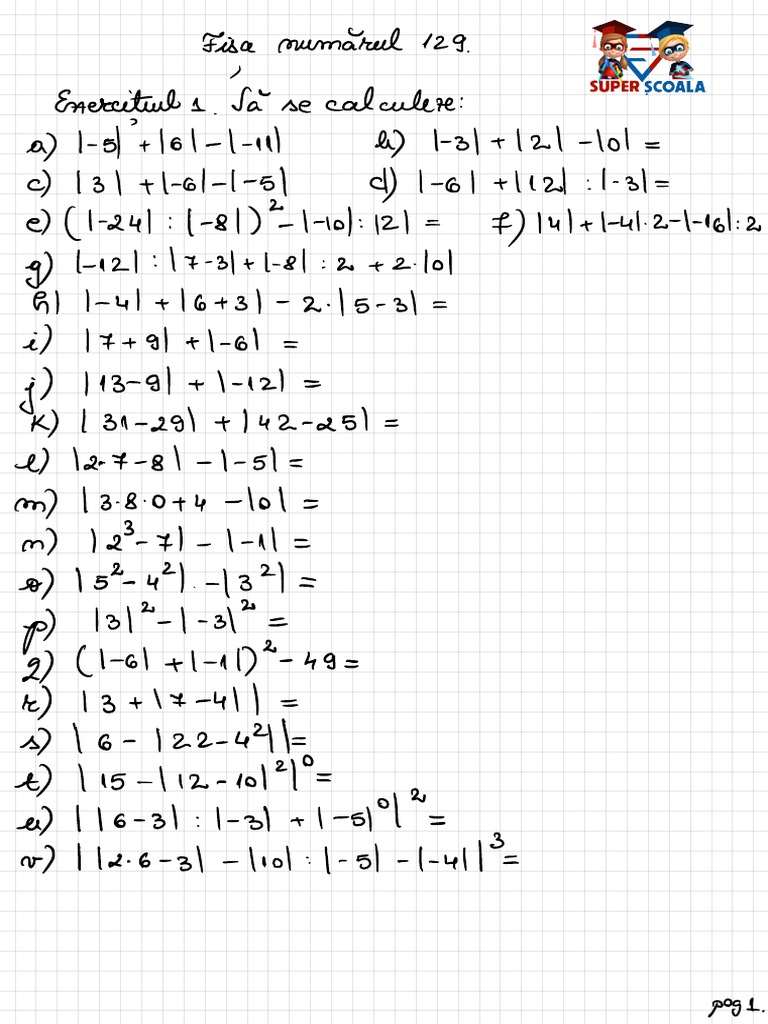 Fișa numărul 129.
SUPER ȘCOALA
Exercițiul 1. Să se calculeze:
a) |-5| + |6| - |-11|    b) |-3| + |2| - |0| =
c) |3| + |-6| - |-5|    d) |-6| + |12| : |-3| =
e) (|-24| : |-8|)² - |-10| : |2| =    f) |4| + |-4|·2 - |-16| : 2
g) |-12| : |7-3| + |-8| : 2 + 2·|0|
h) |-4| + |6+3| - 2·|5-3| =
i) |7+9| + |-6| =
j) |13-9| + |-12| =
k) |31-29| + |42-25| =
l) |2·7-8| - |-5| =
m) |3·8·0+4 - |0| =
n) |2³-7| - |-1| =
o) |5²-4²| · -|3²| =
p) |3|² - |-3|² =
q) (|-6| + |-1|)² - 49 =
r) |3 + |7-4|| =
s) |6 - |22-4²|| =
t) |15 - |12-10|²|⁰ =
u) ||6-3| : |-3| + |-5|⁰|² =
v) ||2·6-3| - |10| : |-5| - |-4||³ =
pag 1.